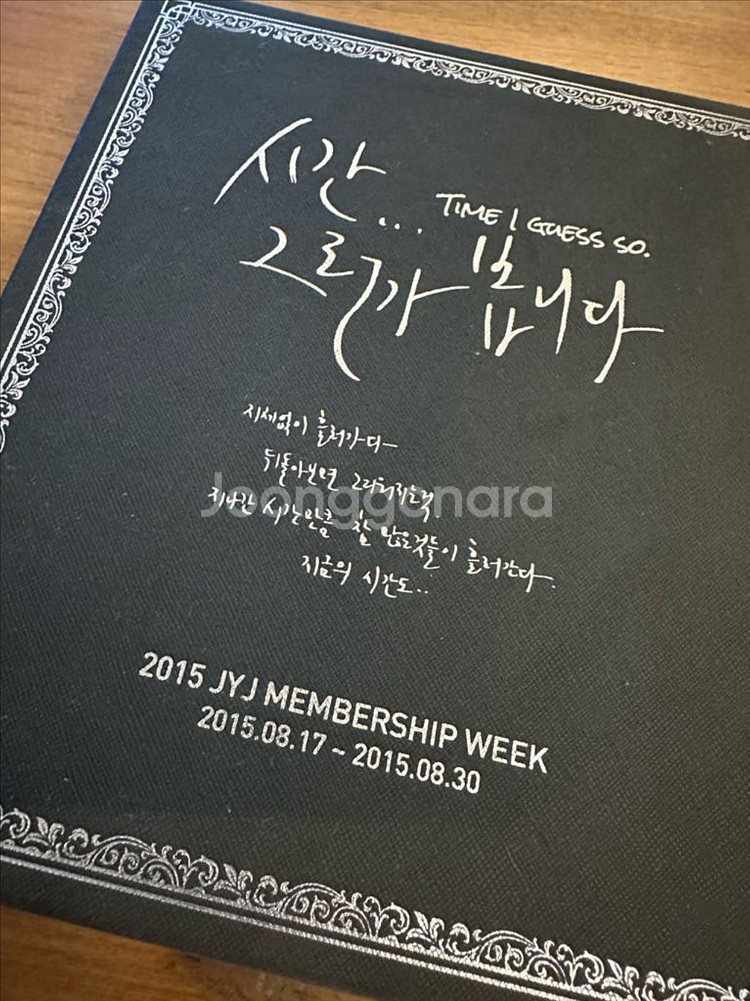 시간...
TIME I GUESS SO.
그런가 봅니다
지세없이 흘러가다
뒤돌아보면 그리워지는걸
지나간 시간만큼 참 많은것들이 흘러간다.
지금의 시간도..
Joonggonara
2015 JYJ MEMBERSHIP WEEK
2015.08.17 ~ 2015.08.30